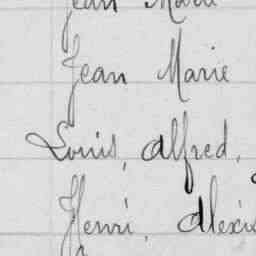 Jean Marie
Jean Marie
Louis, Alfred,
Henri, Alexis